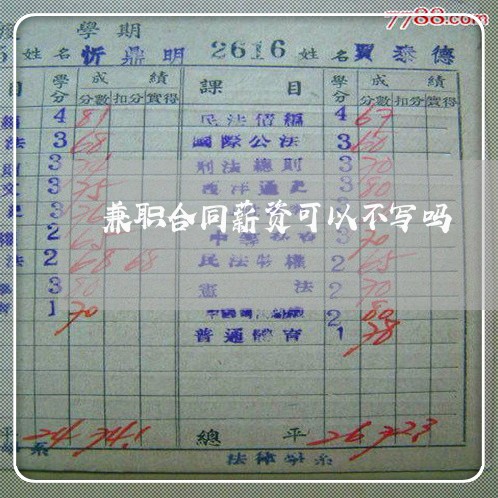 7788.com
學期
姓名 忻鼎明 2616 姓名 賈泰德
目 學分 成績 課目 學分 成績
分數 扣分 實得 分數 扣分 實得
4 81 民法債編 4 67
法 3 68 國際公法 3 60
則 3 刑法總則 3 70
3 75 西洋通史 3 80
兼职合同薪资可以不写吗
3 76 3
2 3 70
法 2 68 68 民法物權 2 65
3 80 憲法 2 70
1 70 2 80
普通體育 1 78
平 24 74.1 總平 26 72.3
系 法律學系